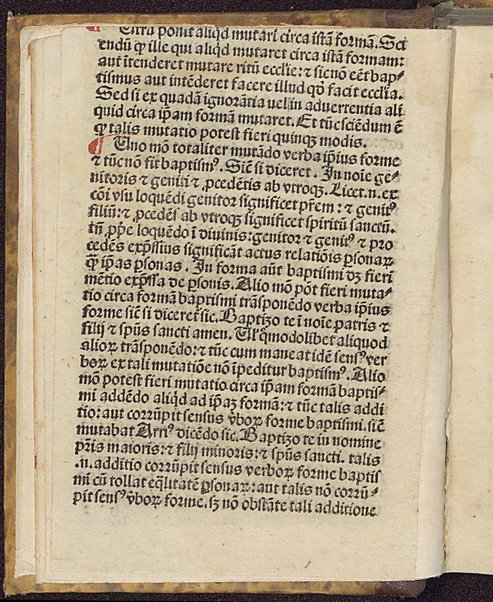 Citra ponit aliqd mutari circa istā formā. Sci
endū ꝙ ille qui aliqd mutaret circa istā formam:
aut ītenderet mutare ritū ecclie: ⁊ sic nō eēt bap⸗
tismus aut intēderet facere illud qđ facit ecclīa.
Sed si ex quadā ignorātia vel in aduertentia ali
quid circa ip̄am formā mutaret. Et tūc sciēdum ē
ꝙ talis mutatio potest fieri quinqꝫ modis.
Uno mō totaliter mutādo verba ip̄ius forme
⁊ tūc nō fit baptismꝰ. Sic̄ si diceret. In noīe ge⸗
nitoris ⁊ geniti ⁊ ꝓcedētis ab vtroqꝫ. Licet.n. ex
cōi vsu loquēdi genitor significet p̄rem: ⁊ genitꝰ
filiū: ⁊ ꝓcedēs ab vtroqꝫ significet spiritū sanctū.
tn̄ ꝓp̄e loquēdo ī diuinis: genitor ⁊ genitꝰ ⁊ pro
cedēs exp̄ssius significāt actus relatiōis ꝑsonaꝝ
ꝙ̄ ip̄as ꝑsonas. In forma aūt baptismi dꝫ fieri
mētio exp̄ssa de ꝑsonis. Alio mō pōt fieri muta⸗
tio circa formā baptismi trāsponēdo verba ip̄ius
forme sic̄ si diceret sic. Baptizo te ī noīe patris ⁊
filij ⁊ sp̄us sancti amen. Uel qͦmodolibet aliquod
alioꝝ trāsponēdo: ⁊ tūc cum maneat idē sensꝰ ver
boꝝ ex tali mutatiōe nō īpeditur baptismꝰ. Alio
mō potest fieri mutatio circa ip̄am formā baptis⸗
mi addēdo aliqd ad ip̄aꝫ formā: ⁊ tūc talis addi
tio: aut corrūpit sensus v̄boꝝ forme baptismi. sic̄
mutabat Arriꝰ dicēdo sic. Baptizo te in nomine
pr̄is maioris: ⁊ filij minoris: ⁊ sp̄us sancti. talis
.n. additio corrūpit sensus verboꝝ forme baptis
mi cū tollat eq̄litatē ꝑsonaꝝ: aut talis nō corrū⸗
pit sensꝰ v̄boꝝ forme. sꝫ nō obstāte tali additione